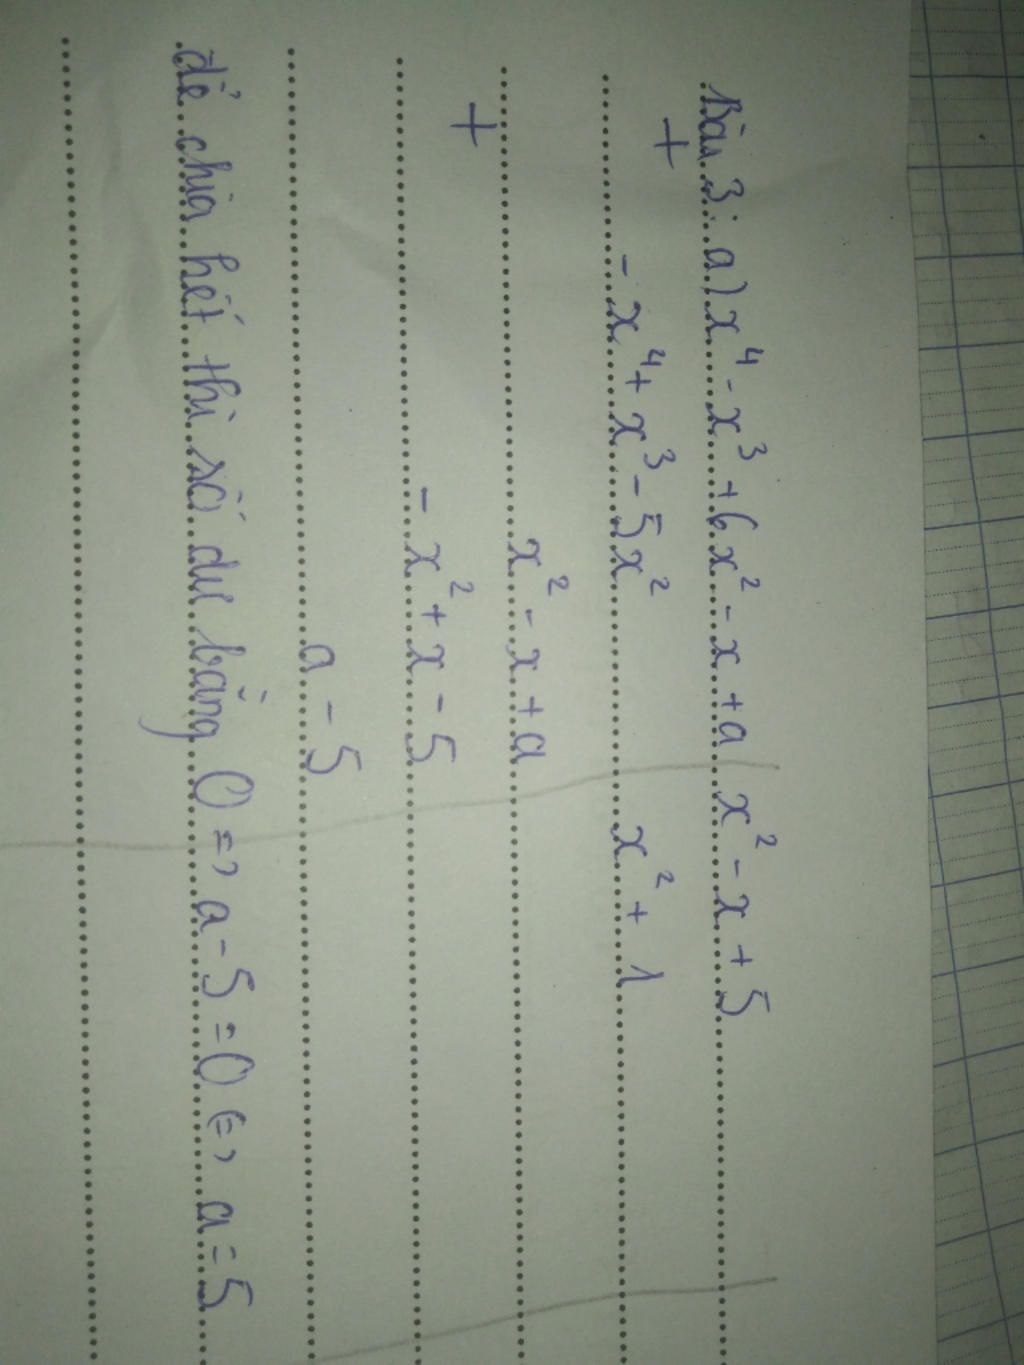 Bài 3: a) x⁴ - x³ + 6x² - x + a x² - x + 5
+
- x⁴ + x³ - 5x² x² + 1
x² - x + a
+
- x² + x - 5
a - 5
để chia hết thì số dư bằng 0 => a - 5 = 0 <=> a = 5